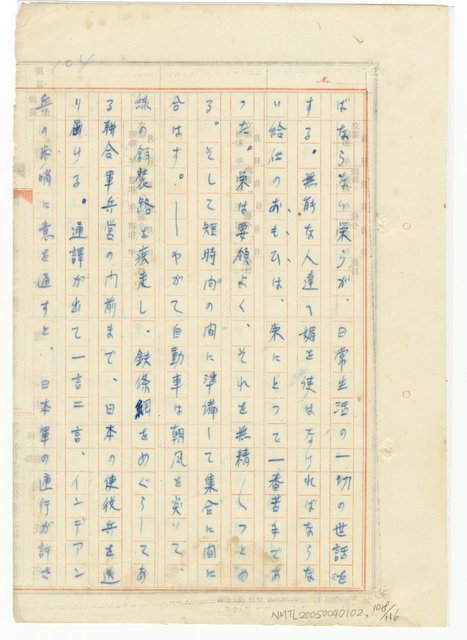 ばならない栄らが、日常生活の一切の世話を
する。無能な人達へ媚を使はなければならな
い給仕のおもひは、栄にとつて一番苦手であ
つた。栄は要領よく、それを無精しつとめ
る。そして短時間の間に準備して集合に間に
合はす。――やがて自動車は朝風を突いて、
緑の舗装路を疾走し、鉄條網をめぐらしてあ
る聯合軍兵営の門前まで、日本の使役兵を送
り届ける。通譯が出て一言二言、インデアン
兵の歩哨に意を通すと、日本軍の通行が許さ
No.
104
NMTL20050040102,
108/146